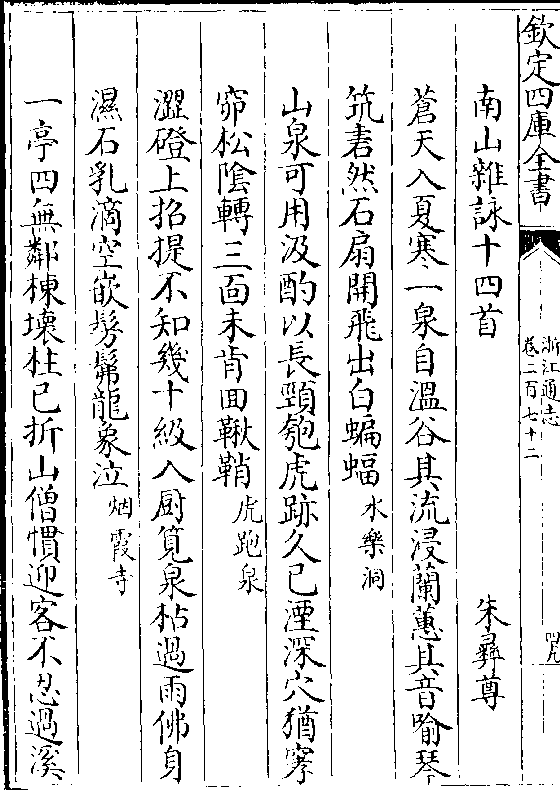 欽定四庫全書
浙江通志
卷二百七十二
南山雜詠十四首 朱彝尊
蒼天入夏寒一泉自溫谷其流浸蘭蕙其音喻琴
筑砉然石扇開飛出白蝙蝠 水樂洞
山泉可用汲酌以長頸匏虎跡久已湮深穴猶窂
窌松陰轉三面未肯回鞦鞘 虎跑泉
澀磴上招提不知幾十級入厨覓泉枯過雨佛身
濕石乳滴空嵌髣髴龍象泣 烟霞寺
一亭四無鄰棟壊柱已折山僧慣迎客不忍過溪